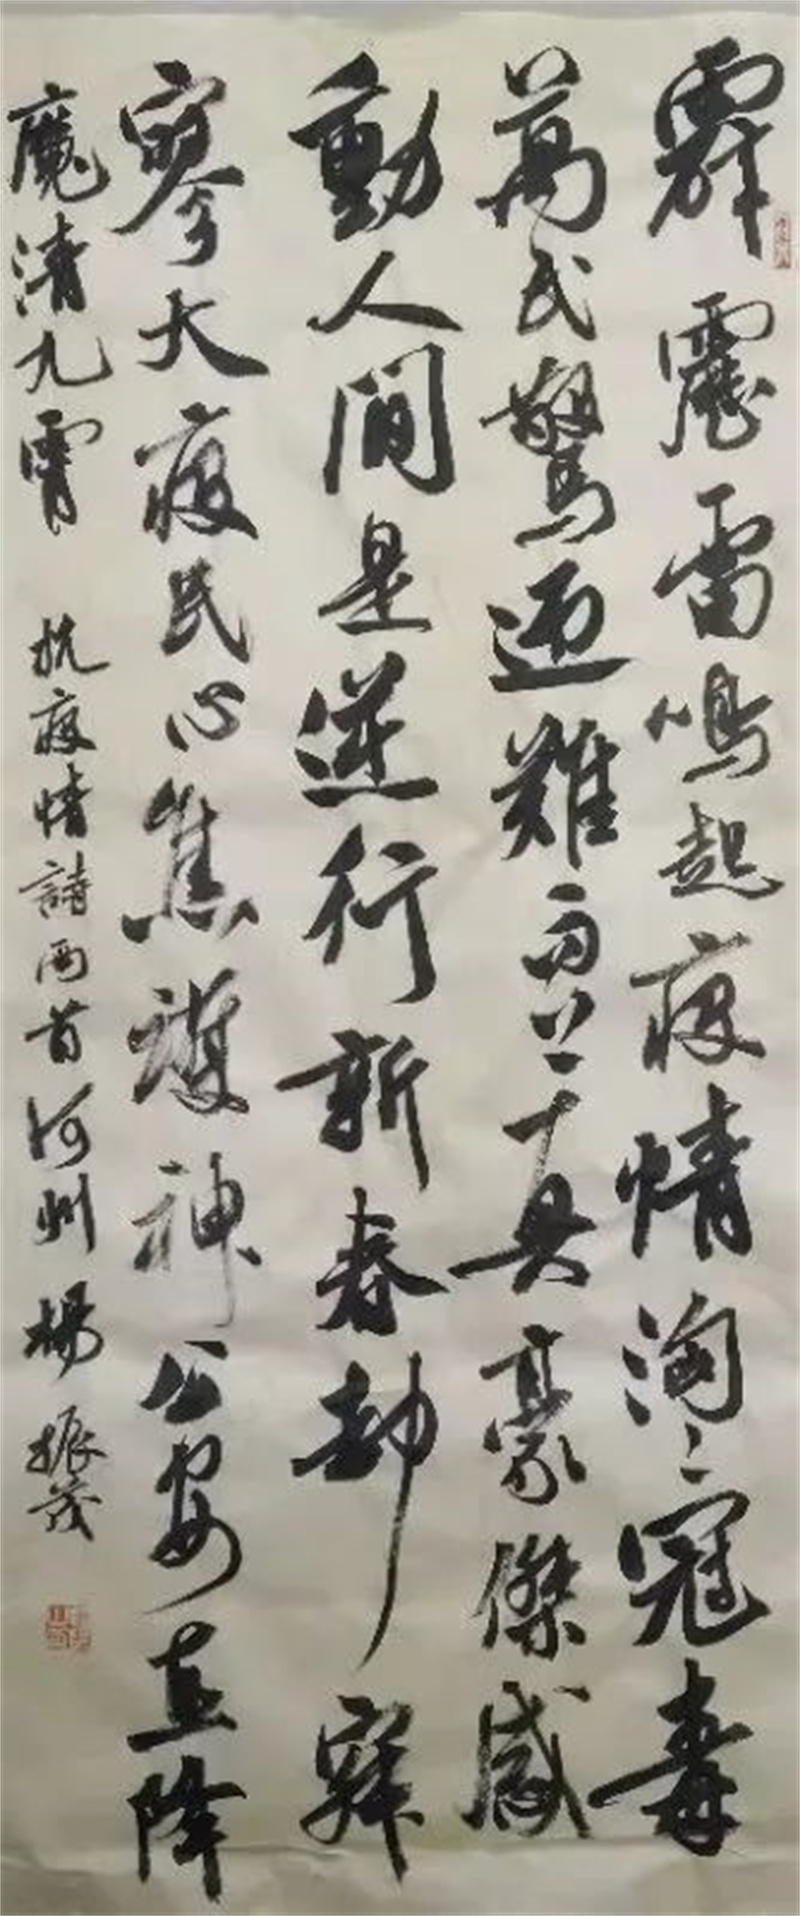 霹靂雷鳴起疫情洶々冠毒
萬民驚迎難而上真豪傑感
動人間是逆行新春劫寂
寥大疫民心焦護神公安在降
魔清九霄 抗疫情詩兩首河州楊振茂